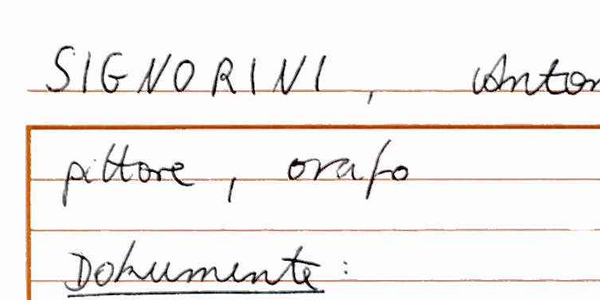 SIGNORINI, Anton
pittore, orafo
Dokumente: